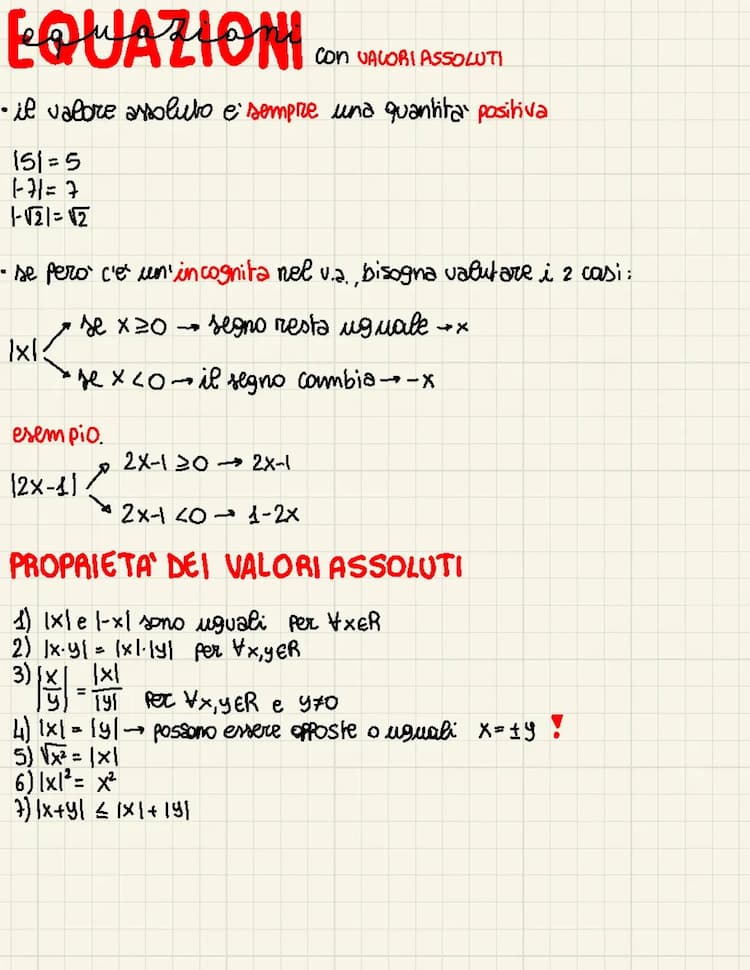 EQUAZIONI
equazioni
con VALORI ASSOLUTI
• il valore assoluto e' sempre una quantita' positiva
|5| = 5
|-7| = 7
|-√2| = √2
• se pero' c'e' un'incognita nel v.a., bisogna valutare i 2 casi:
se x ≥ 0 → segno resta uguale → x
|x|
se x < 0 → il segno cambia → -x
esempio.
2x-1 ≥ 0 → 2x-1
|2x-1|
2x-1 < 0 → 1-2x
PROPRIETA' DEI VALORI ASSOLUTI
1) |x| e |-x| sono uguali per ∀x∈R
2) |x·y| = |x|·|y| per ∀x,y∈R
3) |x/y| = |x|/|y| per ∀x,y∈R e y≠0
4) |x| = |y| → possono essere opposte o uguali x = ±y !
5) √x² = |x|
6) |x|² = x²
7) |x+y| ≤ |x| + |y|